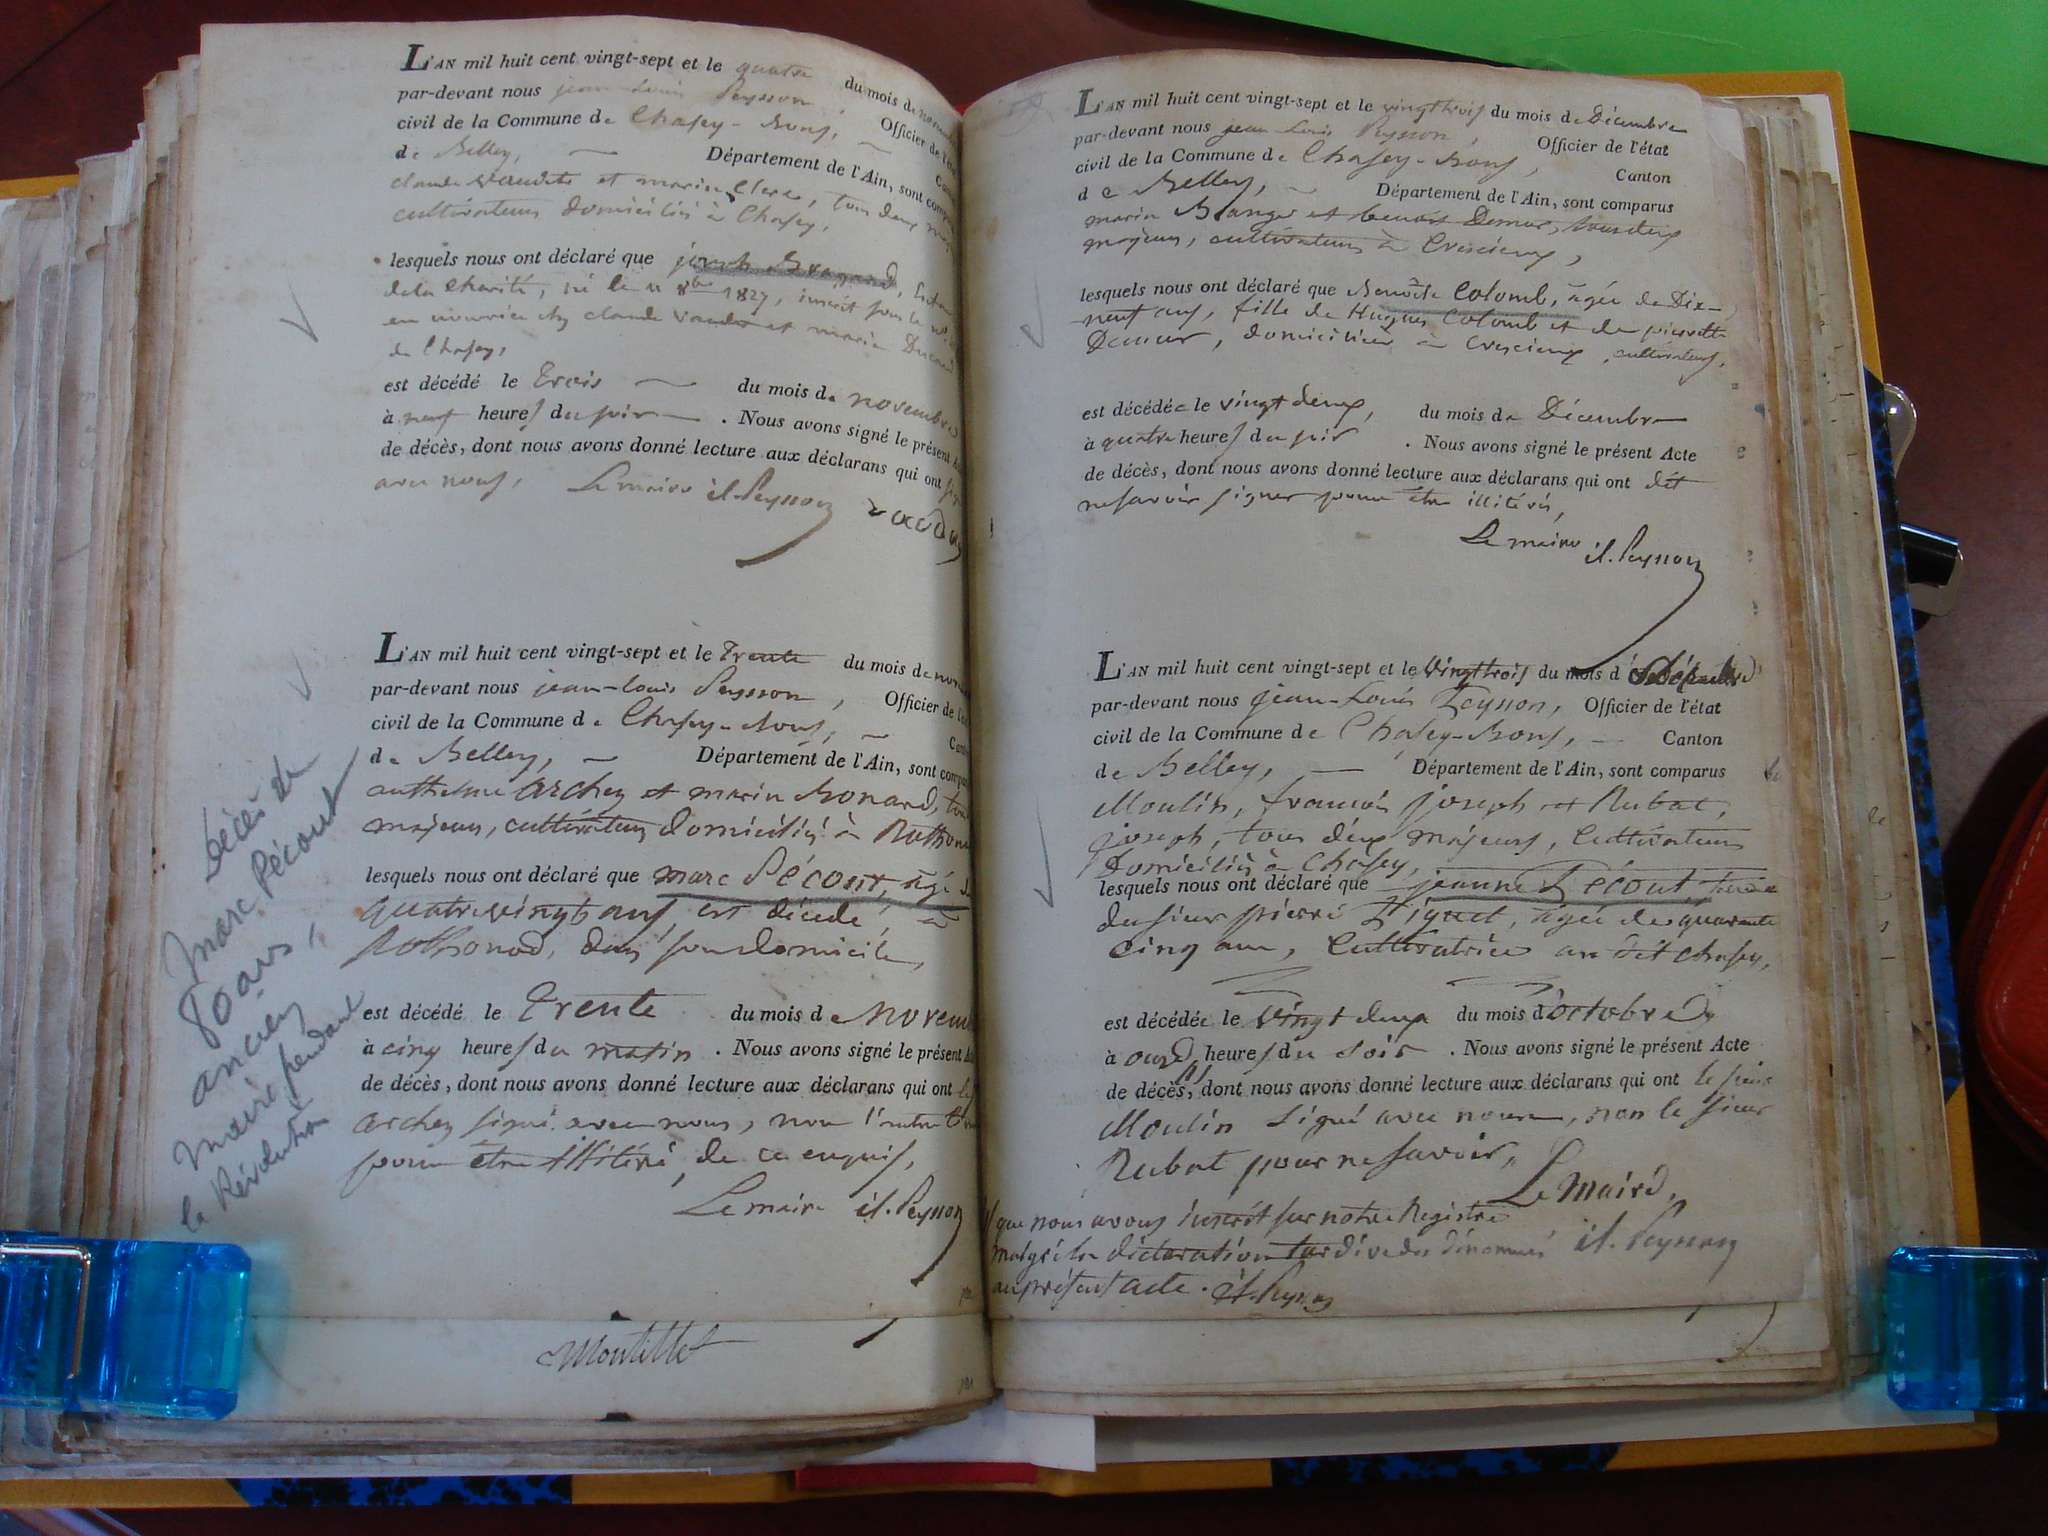 L'AN mil huit cent vingt-sept et le quatre du mois de
par-devant nous jean-Louis Peysson, Officier de l'
civil de la Commune de Chasey-Bons,
de Belley, Département de l'Ain, sont
claude et marin Clerc, tous deux
cultivateurs domiciliés à Chasey,
lesquels nous ont déclaré que
de la Charité, né le 11 8bre 1827, inscrit sous le n°
en nourrice chez claude et marie
de Chasey,
est décédé le Trois du mois de novembre
à neuf heures du soir . Nous avons signé le présent
de décès, dont nous avons donné lecture aux déclarans qui ont
avec nous, Le maire jl. Peysson
L'AN mil huit cent vingt-sept et le Trente du mois de
par-devant nous jean-louis Peysson, Officier de
civil de la Commune de Chasey-Bons,
de Belley, Département de l'Ain, sont
anthelme archey et marin Bonard,
majeurs, cultivateurs domiciliés à
lesquels nous ont déclaré que marc Pécout, âgé
quatrevingt ans, est décédé, à
Rothonod, dans son domicile,
est décédé le Trente du mois de
à cinq heures du matin . Nous avons signé le présent
de décès, dont nous avons donné lecture aux déclarans qui ont
archey signé avec nous, non l'autre
pour être illitéré, de ce enquis,
Le maire jl. Peysson
Décès de
Marc Pécout
80 ans,
ancien
maire pendant
la Révolution
Montillet
L'AN mil huit cent vingt-sept et le vingt trois du mois de Décembre
par-devant nous jean-Louis Peysson, Officier de l'état
civil de la Commune de Chasey-Bons, Canton
de Belley, Département de l'Ain, sont comparus
marin et benoit Demur, tous deux
majeurs, cultivateurs à Crescieux,
lesquels nous ont déclaré que Benoite Colomb, âgée de Dix-
neuf ans, fille de Hugues Colomb et de pierrette
Demur, domiciliée à Crescieux, cultivateurs,
est décédée le vingt deux, du mois de Décembre
à quatre heures du soir . Nous avons signé le présent Acte
de décès, dont nous avons donné lecture aux déclarans qui ont dit
ne savoir signer pour être illitérés,
Le maire
jl. Peysson
L'AN mil huit cent vingt-sept et le Vingt trois du mois d
par-devant nous jean-Louis Peysson, Officier de l'état
civil de la Commune de Chasey-Bons, Canton
de Belley, Département de l'Ain, sont comparus
Moulin, francois joseph et Rubat,
joseph, tous deux majeurs, Cultivateurs
Domiciliés à Chasey,
lesquels nous ont déclaré que jeanne Pécout
du sieur pierre, âgée de quarante
cinq ans, Cultivatrice au dit chasey,
est décédée le Vingt deux du mois d'octobre
à onze heures du soir . Nous avons signé le présent Acte
de décès, dont nous avons donné lecture aux déclarans qui ont le sieur
Moulin signé avec nous, non le sieur
Rubat pour ne savoir,
Le Maire,
que nous avons inscrit sur notre Registre
malgré la déclaration tardive des dénommés jl. Peysson
au présent acte. jl. Peysson